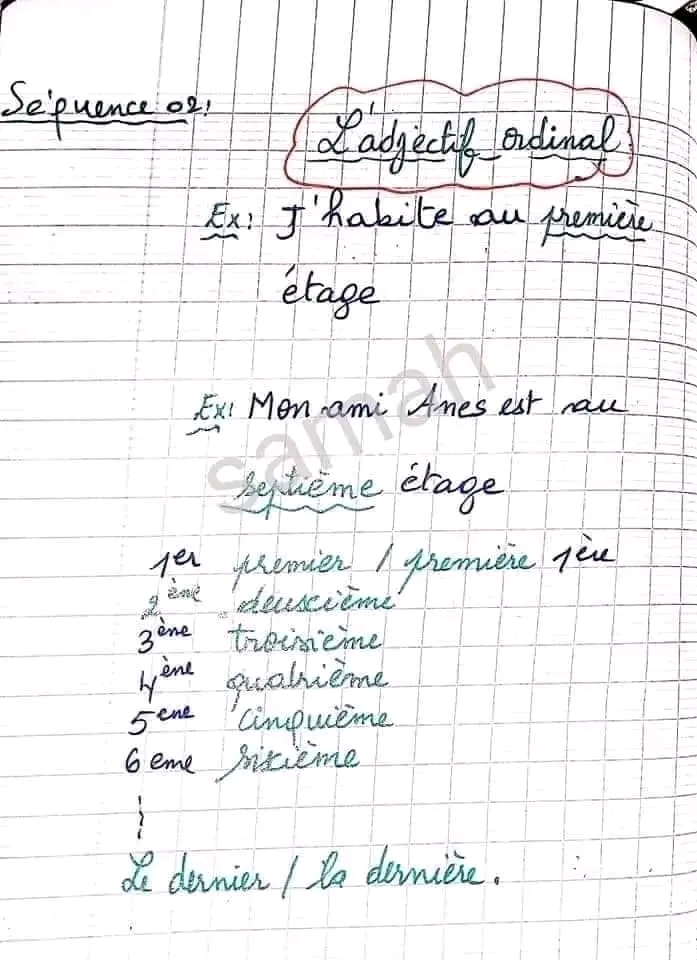 Séquence 02:
L'adjectif ordinal
Ex: J'habite au première
étage
Ex: Mon ami Anes est au
samah
septième étage
1er premier / première 1ère
2ène deuxième
3ène troisième
4ène quatrième
5ene cinquième
6eme sixième
Le dernier / la dernière.